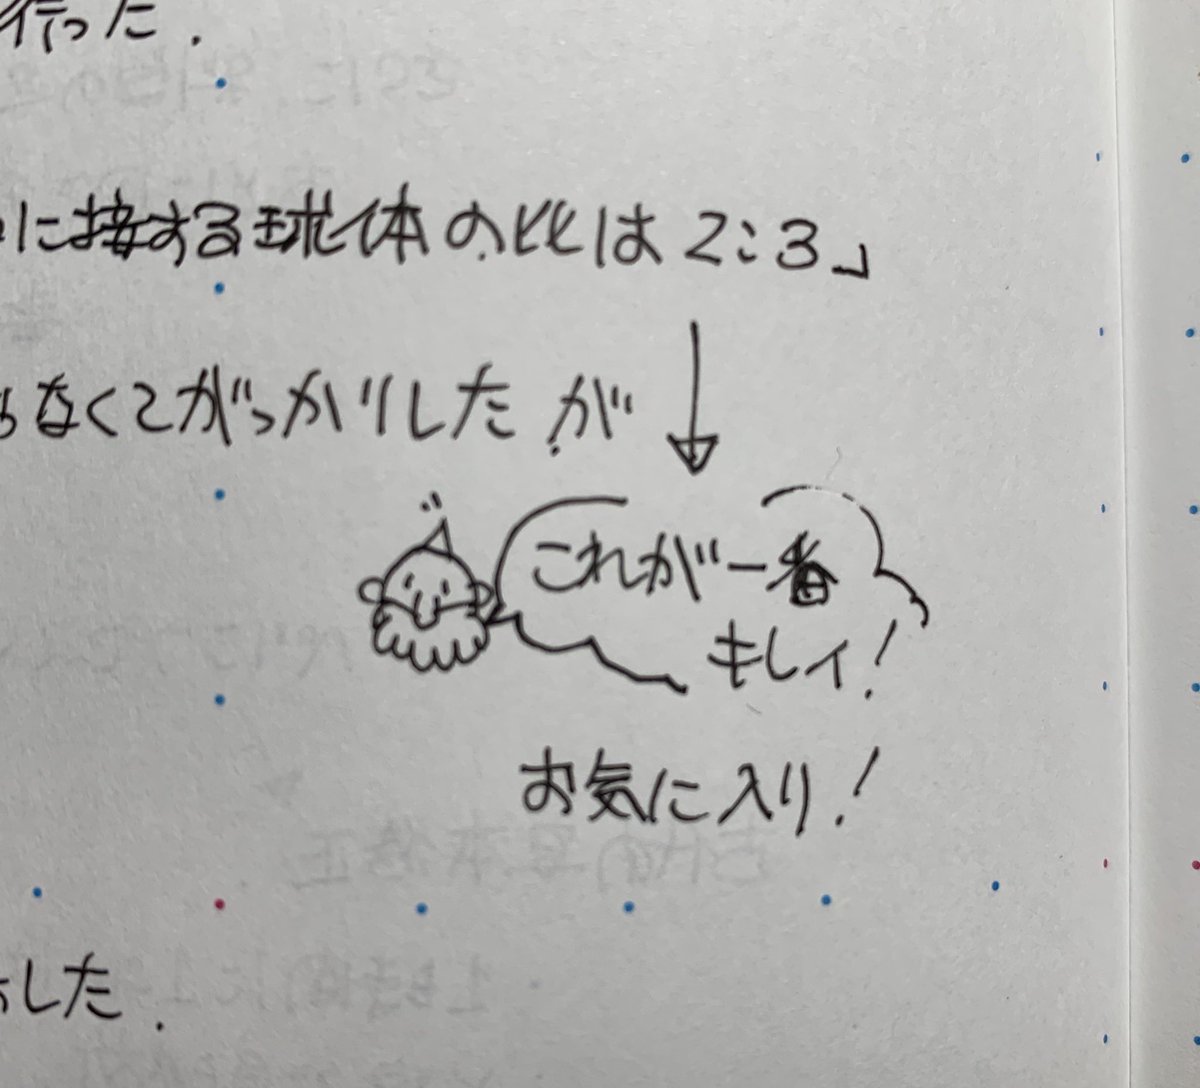 行った.
に接する球体の比は2:3」
なくてがっかりした.が
これが一番
キレイ!
お気に入り!
した.